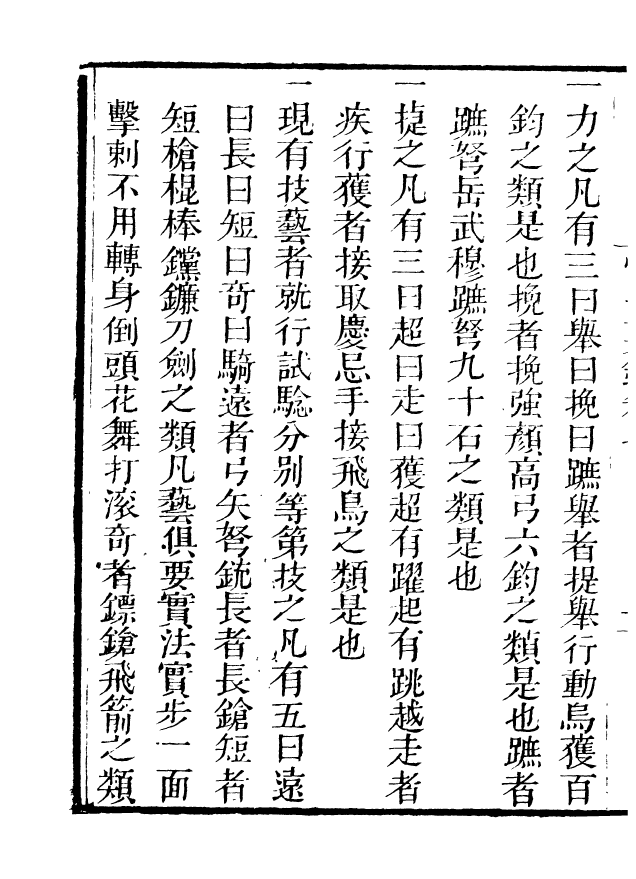 一力之凡有三曰舉曰挽曰蹠舉者提舉行動烏獲百
鈞之類是也挽者挽強顏高弓六鈞之類是也蹠者
蹠弩岳武穆蹠弩九十石之類是也
一捷之凡有三曰超曰走曰獲超有躍起有跳越走者
疾行獲者接取慶忌手接飛鳥之類是也
一現有技藝者就行試騐分别等第技之凡有五曰遠
曰長曰短曰奇曰騎遠者弓矢弩銃長者長鎗短者
短槍棍棒钂鐮刀劍之類凡藝俱要實法實步一面
擊刺不用轉身倒頭花舞打滚奇者鏢鎗飛箭之類